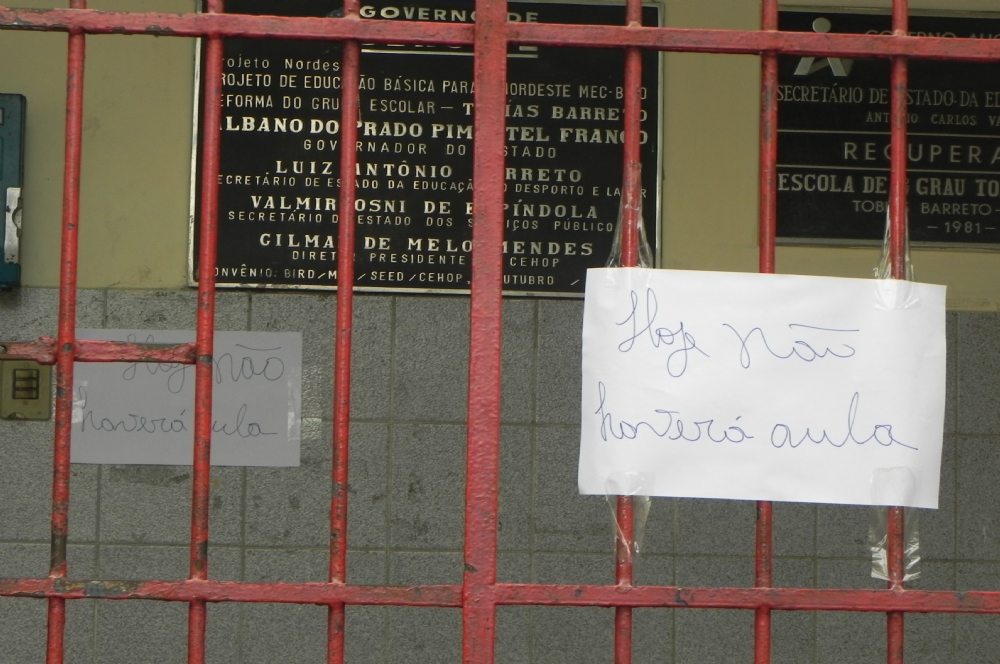 GOVERNO DE
Projeto Nordes
PROJETO DE EDUCAÇÃO BÁSICA PARA NORDESTE MEC-BIRD
REFORMA DO GRUPO ESCOLAR — TOBIAS BARRETO
ALBANO DO PRADO PIMENTEL FRANCO
GOVERNADOR DO ESTADO
LUIZ ANTÔNIO BARRETO
SECRETÁRIO DE ESTADO DA EDUCAÇÃO DESPORTO E LAZER
VALMIR OSNI DE ESPÍNDOLA
SECRETÁRIO DE ESTADO DOS SERVIÇOS PÚBLICO
GILMAR DE MELO MENDES
DIRETOR PRESIDENTE CEHOP
CONVÊNIO: BIRD/MEC/SEED/CEHOP, OUTUBRO
GOVERNO AUG
SECRETÁRIO DE ESTADO DA ED
ANTÔNIO CARLOS VA
RECUPERA
ESCOLA DE 1º GRAU TO
TOBIAS BARRETO-
-1981-
Hoje não
haverá aula
Hoje não
haverá aula